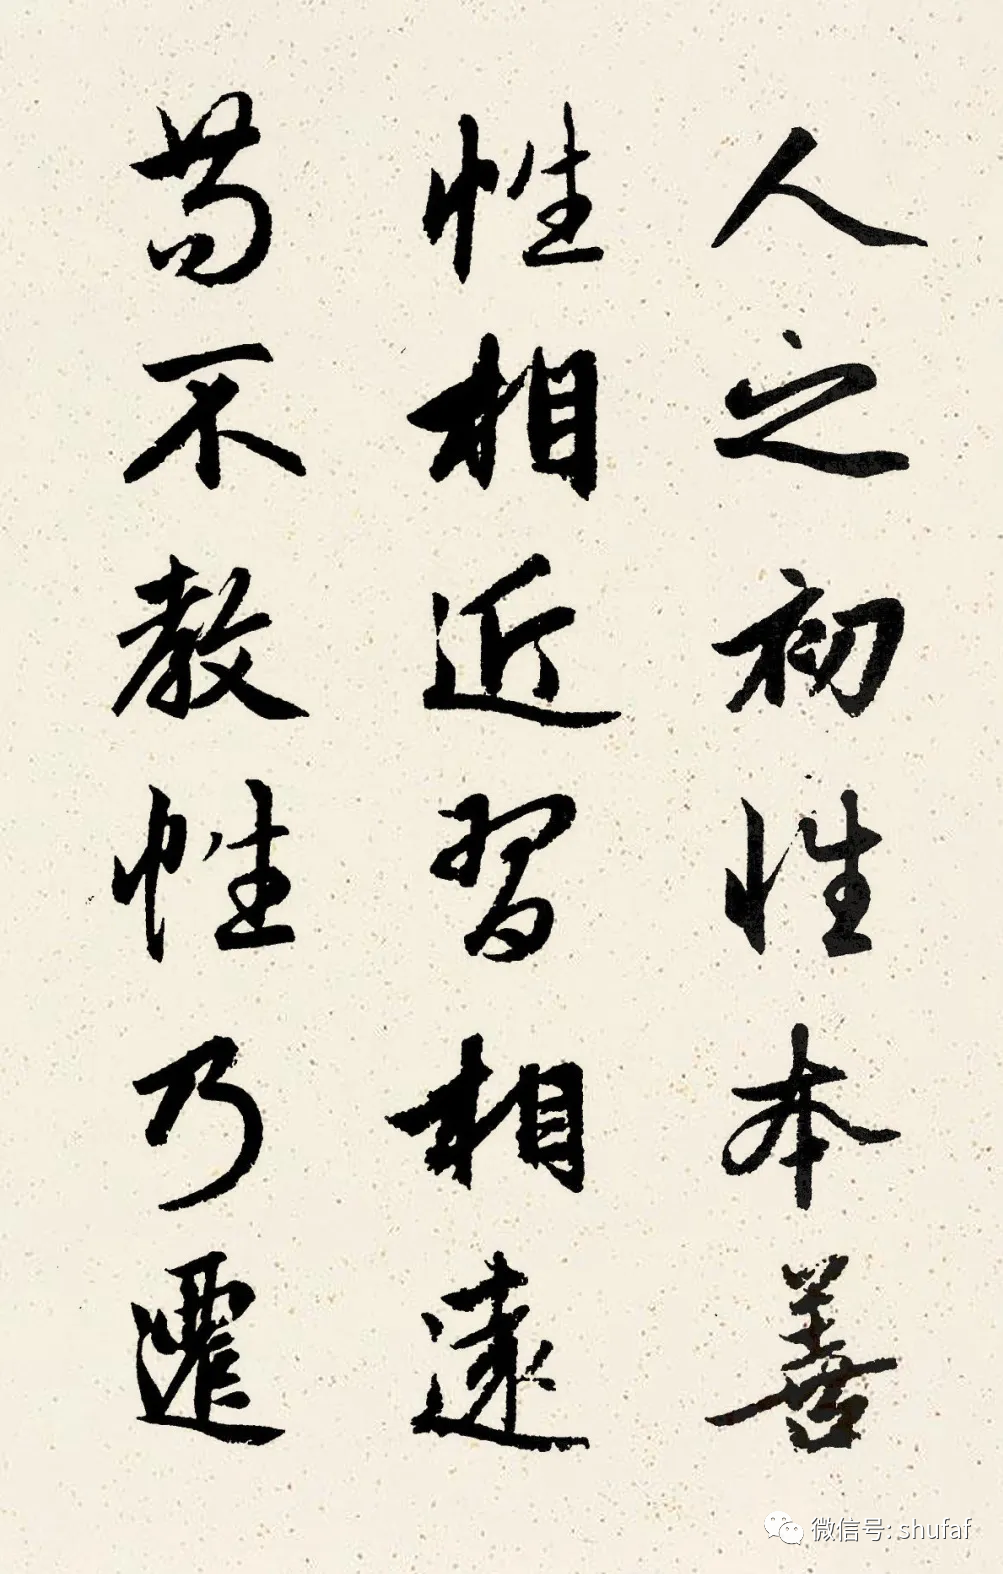 人之初性本善
性相近習相遠
苟不教性乃遷
微信号: shufaf